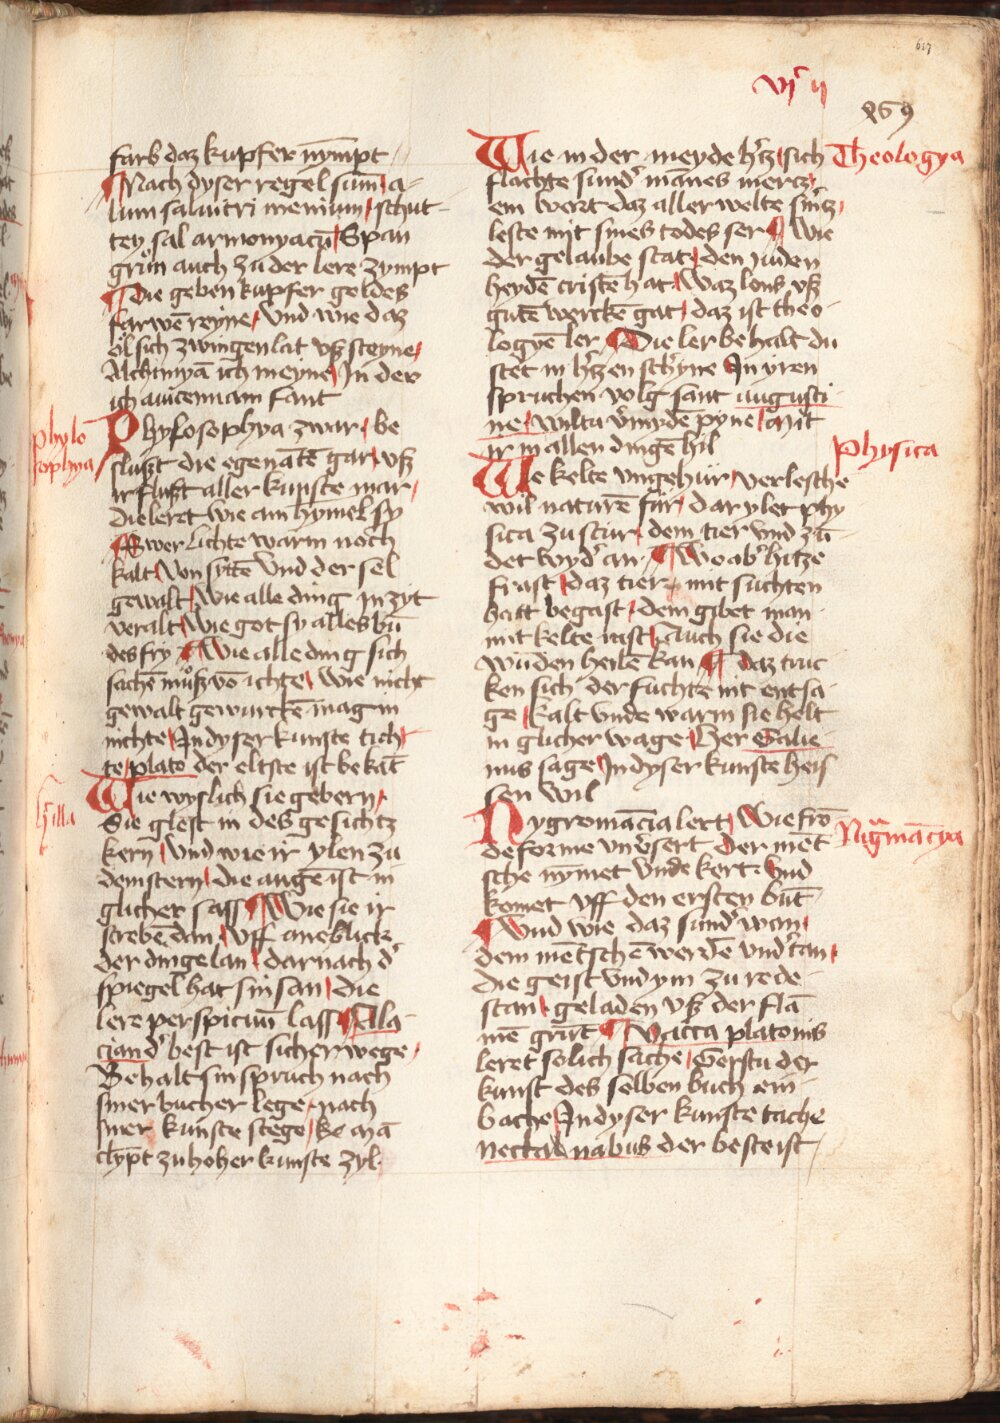 617
vjͬ ij
269
farb daz kupfer nympt
Nach dyser regel sum a-
lum saluitri menium schut-
tey sal armonyacū Span
grůn auch zu der lere zympt
Die geben kupfer goldes
farwē reyne vnd wie daz
ol sich zwingen lat vß steyne
Alchimyā ich meyne In der
ich auicennam fant
Phylo
sophya
Phylosophya zwar be
slußt die egenātē gar vß
ir flußt aller kunste mar
die leret wie am hymel sy
Swer lichte warm noch
kalt von sytē vnd der sel
gewalt wie alle ding In zyt
veralt wie got sy alles bū
des fry Wie alle ding sich
sachē můß vō ichte wie nicht
gewalt gewurckē mag in
nichte In dyser kunste tich
te plato der eltste ist bekāt
Wie wyslich sie gebern
Sie glest in des gesichtz
kern vnd wie ir ylen zu
dem stern die augē ist in
glicher sass Wie sie ir
strebē dan vff aneblick
der dinge lan darnach d'
spiegel hat sin san die
lere perspicuū lass Ala
ciand' best ist sicher wege
Behalt sin spruch nach
siner bucher lege nach
siner kunste stege
clypt zu hoher kunste zyl
Theologya
Wie in der meyde h'tz sich
flachte sund' mānes mercz
em wort daz aller welte smͬtz
leste mit sines todes ser Wie
der gelaube stat den juden
heydē cristē hat Waz lons vß
gutē werckē gat daz ist theo
logyē ler Die ler behalt du
stet in h'tzen schyne In yren
spruchen volg sant augusti
ne wiltu v'mydē pyne Mit
ir in allen dinge hil
Physica
We kelte vngehur verlesche
wil naturē fur dar ylet phy
sica zu stur dem tier vnd zū
det wyd' an Wo ab' hitze
frust daz tier mit suchten
hatt begast dem gibet man
mit kelte rast Auch sie die
wūden heilē kan daz truc
ken sich der fuchte nit entsa
ge kalt vnde warm sie helt
in glicher wage Her Galie
nus sage In dyser kunste heis
sen wil
Nig'mācya
Nygromācia lert Wie frō
de forme vnv'sert Der mēt
sche nymet vnde kert vnd
komet vff den ersten but
Vnd wie daz sund' wan
dem mētschē werdē vnd'tan
die geist vnd ym zu rede
stan geladen vß der flā
mē grūt Vacca platonis
leret solich sache Gerstu der
kunst des selben buch ein
bache In dyser kunste tache
Nectanabus der beste ist